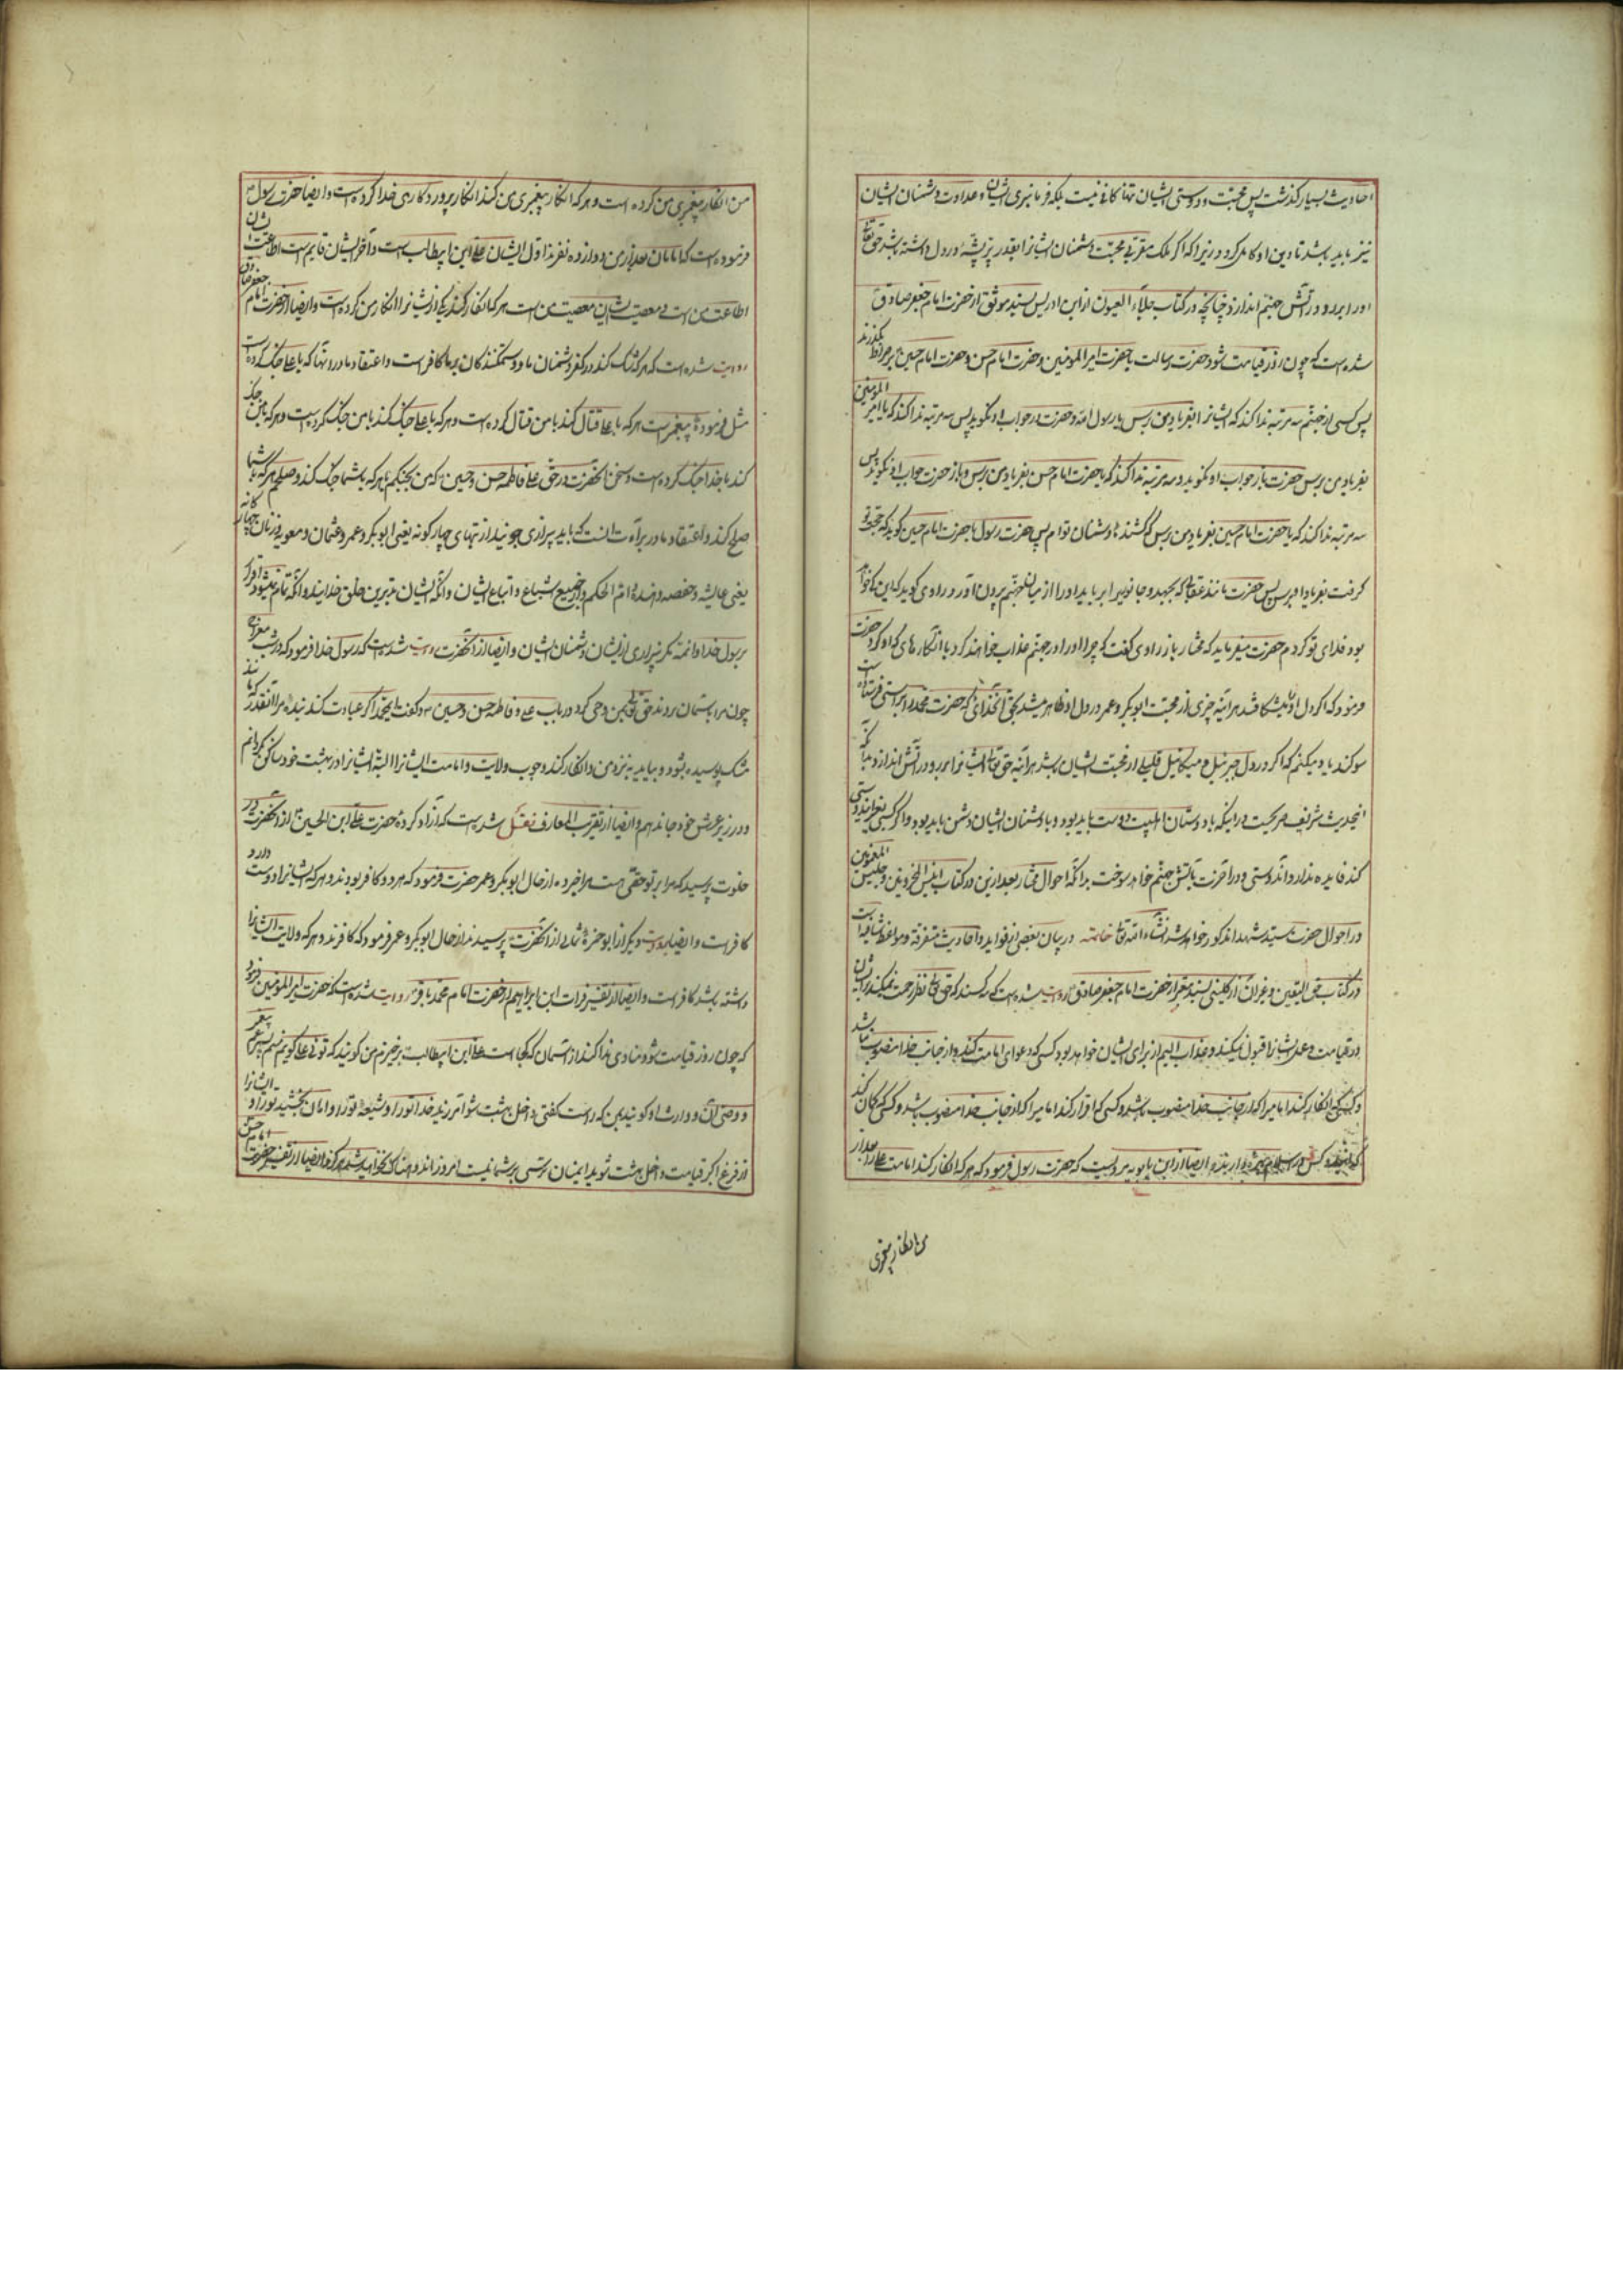 احادیث بسیار گذشت پس محبت و دوستی ایشان تنها کافی نیست بلکه فرمانبری ایشان و عداوت دشمنان ایشان
نیز باید باشد تا دین او کامل گردد زیرا که اگر ملک مقربی محبت دشمنان ایشانرا بقدر پر پشهٔ در دل داشته باشد حق تعالی
او را برد و در آتش جهنم اندازد چنانچه در کتاب جلاء العیون از ابن ادریس بسند موثق از حضرت امام جعفر صادق
شده است که چون روز قیامت شود حضرت رسالت با حضرت امیر المومنین و حضرت امام حسن و حضرت امام حسین بر صراط بگذرند
پس کسی از جهنم سه مرتبه ندا کند که ایشانرا بفریاد من برس یا رسول الله و حضرت در جواب او نگوید پس سه مرتبه ندا کند که یا امیر المومنین
بفریاد من برس حضرت باز جواب او نگوید و سه مرتبه ندا کند که یا حضرت امام حسن بفریاد من برس و باز حضرت جواب او نگوید پس
سه مرتبه ندا کند که یا حضرت امام حسین بفریاد من برس که کشندهٔ دشمنان توام پس حضرت رسول با حضرت امام حسین گوید که حجت بر تو
گرفت بفریاد او برس پس حضرت مانند عقابی که بجهد و جانوریرا برباید او را از میان جهنم بیرون آورد راوی گوید که این که خواهد
بود فدای تو گردم حضرت میفرماید که مختار باز راوی گفت که چرا او را در جهنم عذاب خواهند کرد با آن کارهای که او کرد حضرت
فرمود که اگر دل او را میشکافند هر آینه چیزی از محبت ابوبکر و عمر در دل او ظاهر میشد بحق آنخدائی که حضرت محمد را براستی فرستاده است
سوگند یاد میکنم که اگر در دل جبرئیل و میکائیل قلیلی از محبت ایشان باشد هر آینه حق تعالی ایشانرا برو در آتش اندازد بدآنکه
اینحدیث شریف صریحست در اینکه با دوستان اهلبیت دوست باید بود و با دشمنان ایشان دشمن باید بود و اگر کسی بغیر این دوستی
کند فایده ندارد و آندوستی در آخرت بآتش جهنم خواهد سوخت بدانکه احوال مختار بعد ازین در کتاب انیس المحزونین و جلیس المغمومین
در احوال حضرت سید شهدا مذکور خواهد شد انشاء الله تعالی خاتمه در بیان بعضی از فواید و احادیث متفرقه و مواعظ شافیه است
در کتاب حق الیقین و غیر آن از کلینی بسند معتبر از حضرت امام جعفر صادق روایت شده است که سه کسند که حق تعالی نظر رحمت نمیکند بر ایشان
در قیامت و عمل ایشانرا قبول نمیکند و عذاب الیم از برای ایشان خواهد بود کسی که دعوای امامت کند و از جانب خدا منصوب نباشد
و کسی که انکار کند امامیرا که از جانب خدا منصوب باشد و کسی که اقرار کند امامیرا که از جانب خدا منصوب نباشد و کسی که گمان کند
که این دو کس در اسلام بهره دارند و ایضا از ابن بابویه مرویست که حضرت رسول فرمود که هر که انکار کند امامت علی را بعد از
من انکار پیغمبری
من انکار پیغمبری من کرده است و هر که انکار پیغمبری من کند انکار پروردگاری خدا کرده است و ایضا حضرت رسول
فرموده است که امامان بعد از من دوازده نفرند اول ایشان علی ابن ابیطالب است و آخر ایشان قایم است اطاعت ایشان
اطاعت من است و معصیت ایشان معصیت من است هر که انکار کند یکی از ایشانرا انکار من کرده است و ایضا از حضرت امام جعفر صادق
روایت شده است که هر که شک کند در کفر دشمنان ما و ستمکنندگان بر ما کافر است و اعتقاد ما در آنها که با علی جنگ کرده است
مثل فرمودهٔ پیغمبر است هر که با علی قتال کند با من قتال کرده است و هر که با علی جنگ کند با من جنگ کرده است و هر که با من جنگ
کند با خدا جنگ کرده است و سخن آنحضرت در حق علی فاطمه حسن و حسین که من بجنگم با هر که با شما جنگ کند و صلحم با هر که با شما
صلح کند و اعتقاد ما در برآءت آنست که باید بیزاری جویند از بتهای چهارگونه یعنی ابوبکر و عمر و عثمان و معویه و زنان چهارگانه
یعنی عایشه و حفصه و هند و ام الحکم و از جمیع اشیاع و اتباع ایشان و آنکه ایشان بدترین خلق خدایند و آنکه تمام نمیشود اقرار
برسول خدا و ائمه مگر ببیزاری از ایشان و دشمنان ایشان و ایضا از آنحضرت روایت شده است که رسول خدا فرمود که در شب معراج
چون مرا بآسمان بردند حق تعالی بمن وحی کرد در باب علی و فاطمه حسن و حسین و گفت ایمحمد اگر عبادت کند بندهٔ مرا آنقدر که مانند
مشک پوسیده شود و بیاید بنزد من و انکار کند وجوب ولایت و امامت ایشانرا البته ایشانرا در بهشت خود ساکن نگردانم
و در زیر عرش خود جا ندهم و ایضا از تقریب المعارف نقل شده است که آزاد کردهٔ حضرت علی ابن الحسین از آنحضرت در
خلوت پرسید که مرا بر تو حقی هست مرا خبر ده از حال ابوبکر و عمر حضرت فرمود که هر دو کافر بودند و هر که ایشانرا دوست دارد
کافر است و ایضا بروایت دیگر از ابو حمزهٔ ثمالی از آنحضرت پرسیدند از حال ابوبکر و عمر فرمود که کافرند و هر که ولایت ایشانرا
داشته باشد کافر است و ایضا از تفسیر فرات ابن ابراهیم از حضرت امام محمد باقر روایت شده است که حضرت امیر المومنین فرمود
که چون روز قیامت شود منادی ندا کند از آسمان که کجا است علی ابن ابیطالب برخیزم من گویند که توئی علی گویم منم پسر عم پیغمبر
و وصی آن و وارث او گویند بمن که راست گفتی داخل بهشت شو آمرزید خدا تو را و شیعهٔ تو را و امان بخشید تو را و ایشانرا
از فزع اکبر قیامت داخل بهشت شوید ایمنان ترسی بر شما نیست امروز و اندوهناک نخواهید شد هرگز و ایضا از تفسیر حضرت امام حسن